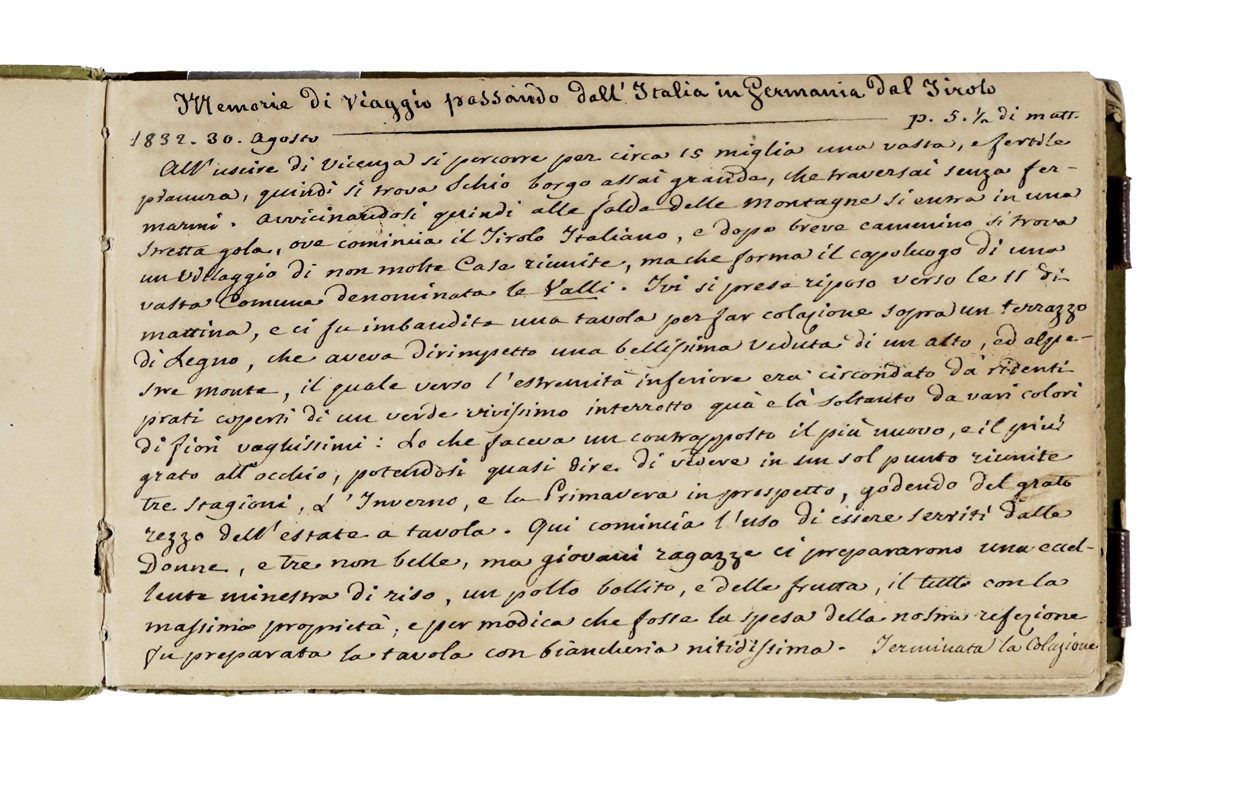 Memorie di Viaggio passando dall'Italia in Germania dal Tirolo
1832. 30. Agosto p. 5. ½ di matt.
All'uscire di Vicenza si percorre per circa 15 miglia una vasta, e fertile
pianura, quindi si trova Schio borgo assai grande, che traversai senza fer-
marmi. Avvicinandosi quindi alle falde delle montagne si entra in una
stretta gola, ove comincia il Tirolo Italiano, e dopo breve cammino si trova
un Villaggio di non molte Case riunite, ma che forma il capoluogo di una
vasta Comune denominata le Valli. Ivi si prese riposo verso le 11 di
mattina, e ci fu imbandita una tavola per far colazione sopra un terrazzo
di Legno, che aveva dirimpetto una bellissima veduta di un alto, ed alpe-
stre monte, il quale verso l'estremità inferiore era circondato da ridenti
prati coperti di un verde vivissimo interrotto quà e là soltanto da vari colori
di fiori vaghissimi: Lo che faceva un contrapposto il più nuovo, e il più
grato all'occhio, potendosi quasi dire di vedere in un sol punto riunite
tre stagioni, L'Inverno, e la Primavera in prospetto, godendo del grato
rezzo dell'estate a tavola. Qui comincia l'uso di essere serviti dalle
Donne, e tre non belle, ma giovani ragazze ci prepararono una eccel-
lente minestra di riso, un pollo bollito, e delle frutta, il tutto con la
massima proprietà, e per modica che fosse la spesa della nostra refezione
fu preparata la tavola con biancheria nitidissima. Terminata la Colazione